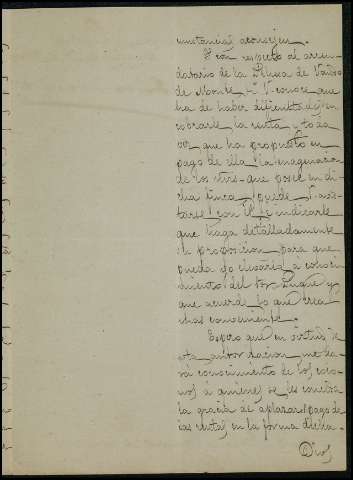 cunstancias aconsejen.
Y con respecto al arren-
datario de la Dehesa de
de Monte si V. conoce que
ha de haber dificultades en
cobrarle la renta y toda
vez que ha propuesto en
pago de ella la enagenacion
de los que posee en di-
cha finca puede V.
con él é indicarle
que haga detalladamente
la proposicion para que
pueda yo elevarla a conoci-
miento del Sor. Duque y
que acuerde lo que crea
mas conveniente.
Espero que en virtud de
esta autorizacion me da-
rá conocimiento de los colo-
nos á quienes se les conceda
la gracia de aplazar el pago de
las rentas en la forma dicha.
Dios